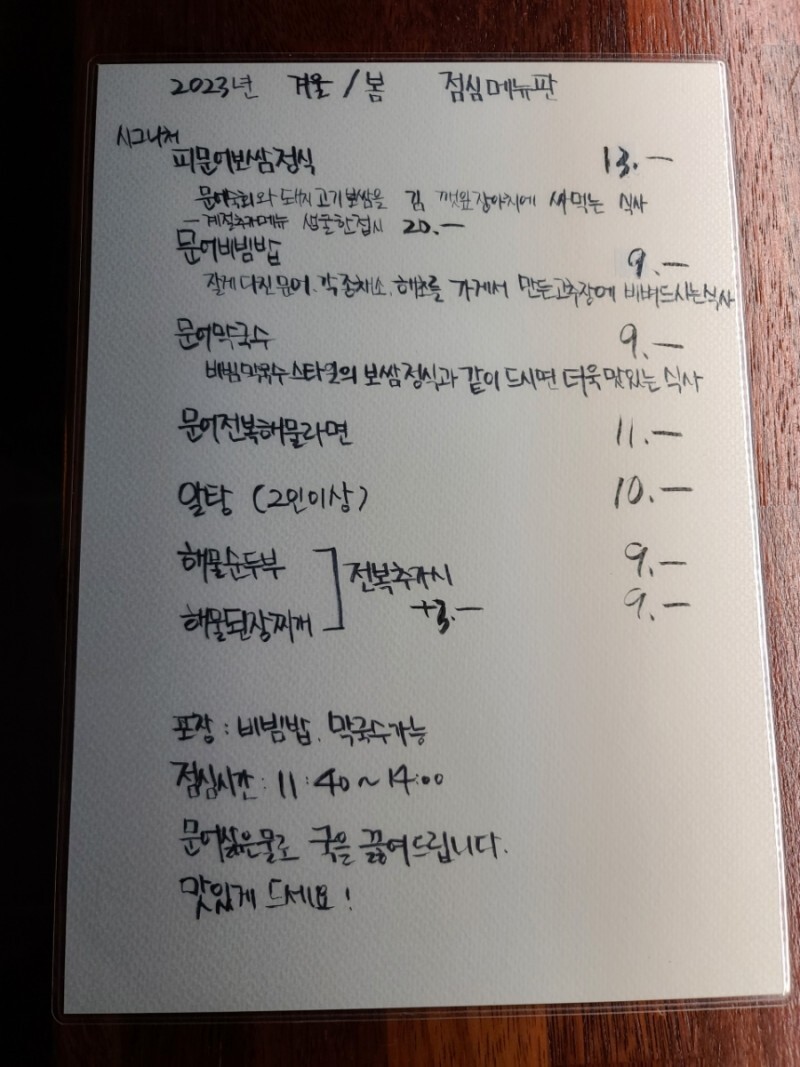 2023년 겨울/봄 점심메뉴판
시그니처
피문어보쌈정식 13.-
문어숙회와 돼지고기보쌈을 김, 깻잎장아찌에 싸먹는 식사
- 계절추가메뉴 생굴한접시 20.-
문어비빔밥 9.-
잘게 다진문어, 각종채소, 해초를 가게서 만든고추장에 비벼드시는식사
문어막국수 9.-
비빔막국수스타일의 보쌈정식과 같이 드시면 더욱맛있는 식사
문어전복해물라면 11.-
알탕 (2인이상) 10.-
해물순두부 9.-
전복추가시
+3.-
해물된장찌개 9.-
포장 : 비빔밥, 막국수가능
점심시간 : 11:40~14:00
문어삶은물로 국을 끓여드립니다.
맛있게 드세요!